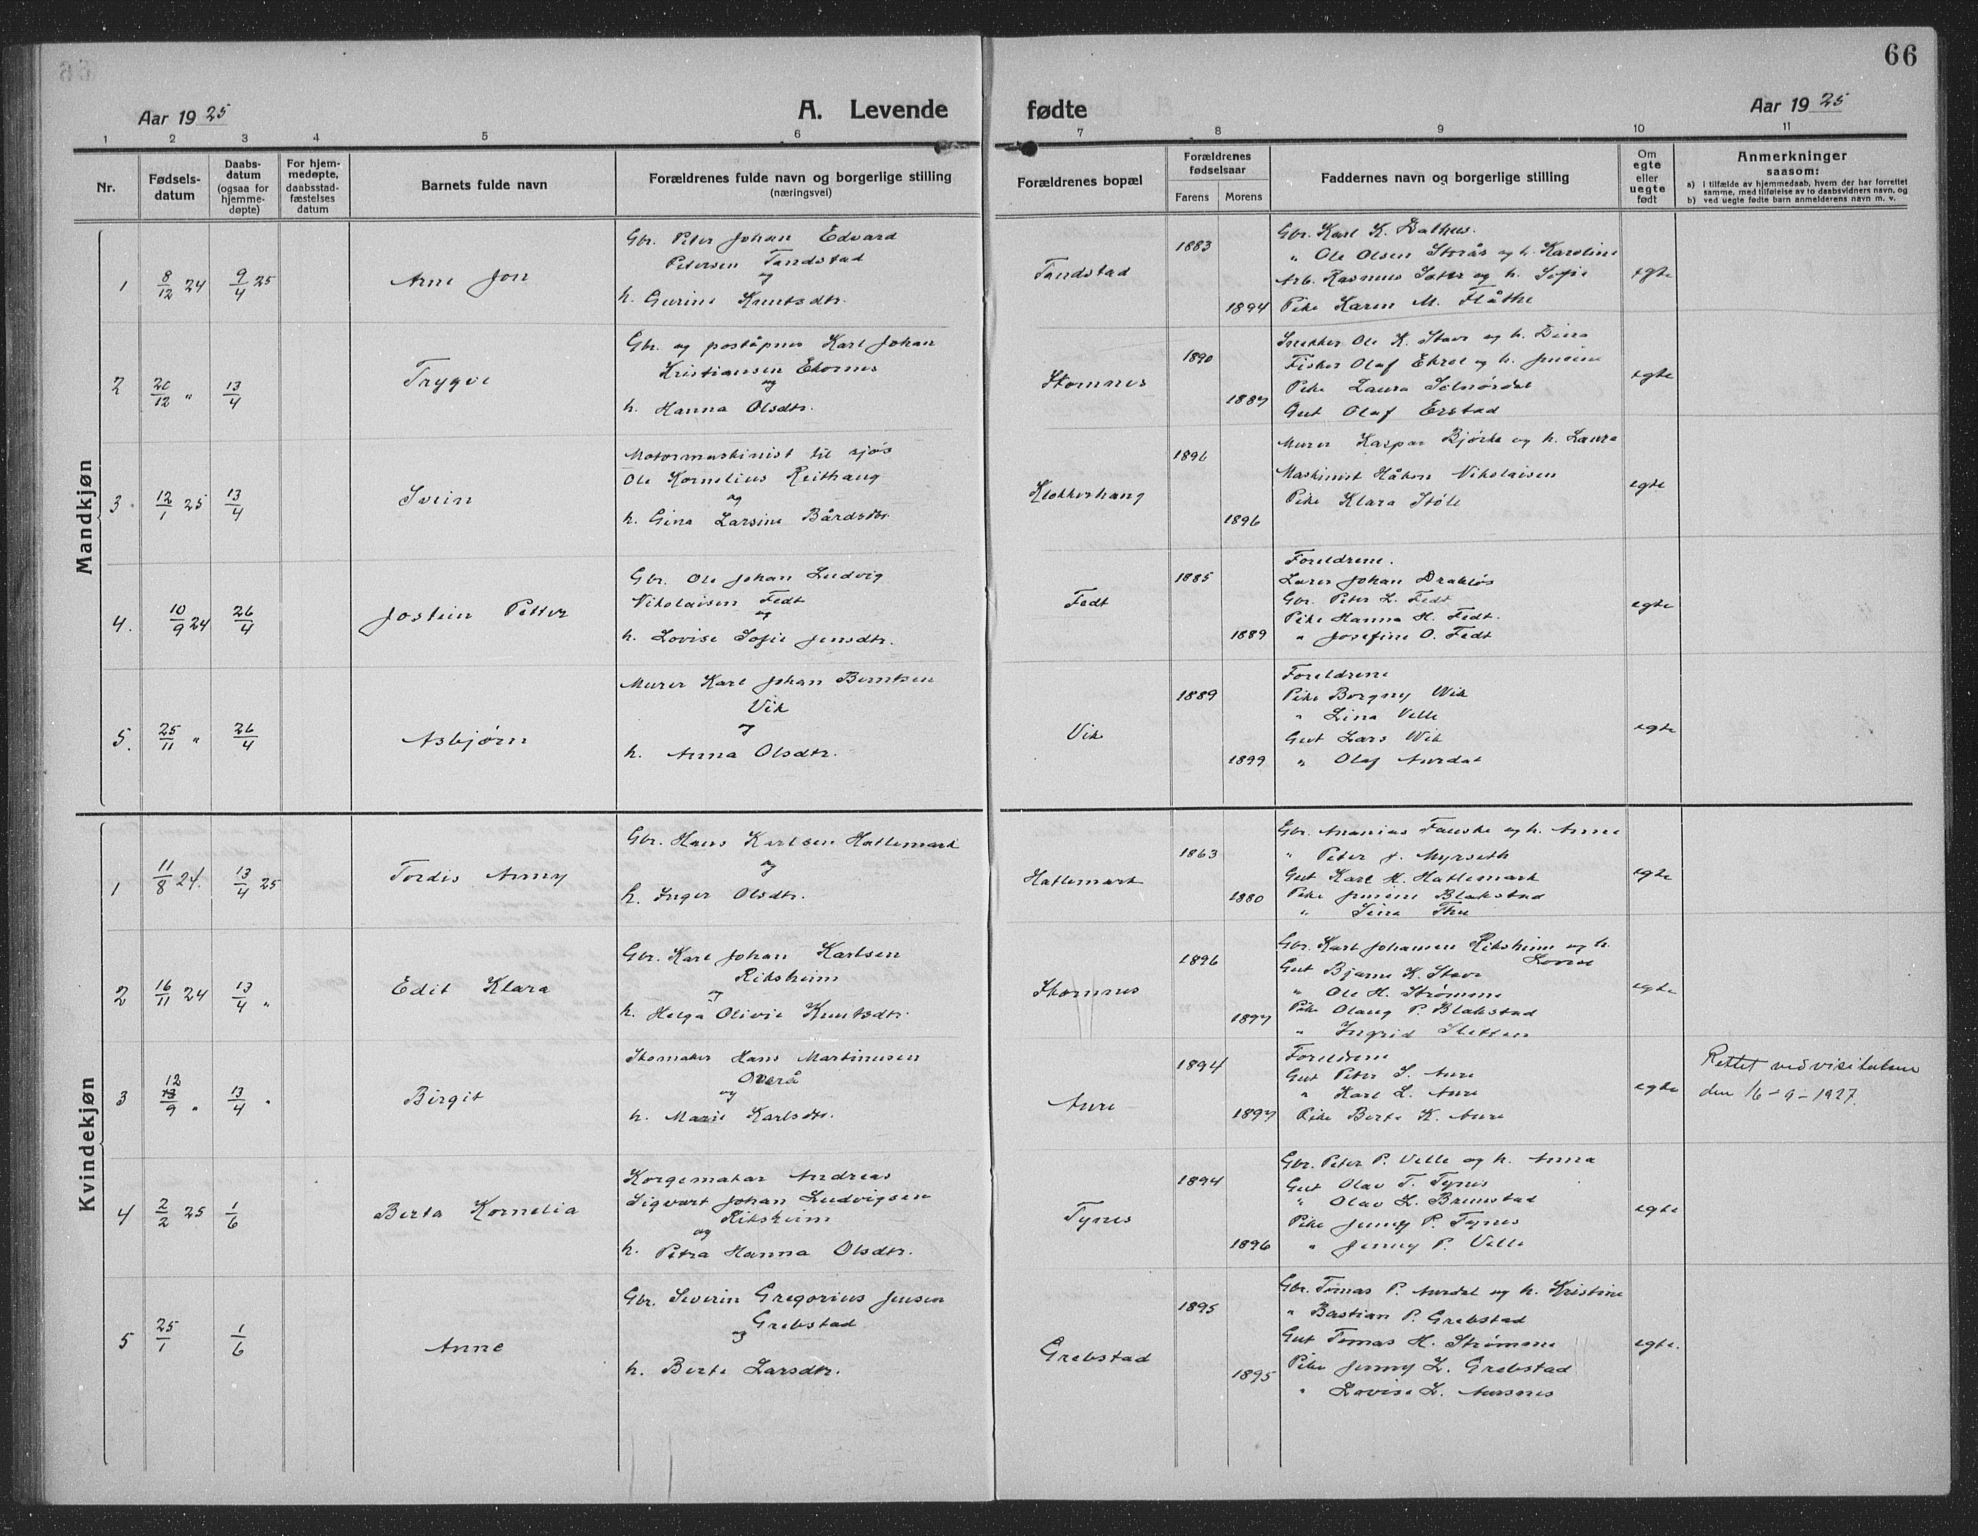 66
Aar 1925
A. Levende fødte
Aar 1925
1 2 3 4 5 6 7 8 9 10 11
Nr.
Fødsels-
datum
Daabs-
datum
(ogsaa for
hjemme-
døpte)
For hjem-
medøpte,
daabsstad-
fæstelses
datum
Barnets fulde navn
Forældrenes fulde navn og borgerlige stilling
(næringsvei)
Forældrenes bopæl
Forældrenes
fødselsaar
Farens Morens
Faddernes navn og borgerlige stilling
Om
egte
eller
uegte
født
Anmerkninger
saasom:
a) i tilfælde av hjemmedaab, hvem der har forrettet
samme, med tilføielse av to daabsvidners navn, og
b) ved uegte fødte barn anmelderens navn m. v.
Mandkjøn
1 8/12 24 9/4 25 Arne Jon
Gbr. Peter Johan Edvard
Petersen Tandstad
og
h. Gurine Knutsdtr.
Tandstad
1883
1894
Gbr. Karl K. Dalhus.
" Ole Olsen Storås og h. Karoline
Arb. Rasmus Sæter og h. Sofie
Pike Karen M. Flåthe
egte
2 20/12 " 13/4 Trygve
Gbr. og poståpner Karl Johan
Kristiansen Ekornes
og
h. Hanna Olsdtr.
Ikornnes
1890
1887
Snekker Ole K. Stave og h. Dina
Fisker Olaf Ekrol og h. Jensine
Pike Laura Selnørdal
Gut Olaf Erstad
egte
3 12/1 25 13/4 Svein
Motormaskinist til sjøs
Ole Kornelius Reithaug
og
h. Gina Larsine Bårdsdtr.
Klokkerhaug
1896
1896
Murer Kaspar Bjørke og h. Laura
Maskinist Håkon Nikolaisen
Pike Klara Støle
egte
4. 10/9 24 26/4 Jostein Petter
Gbr. Ole Johan Ludvig
Nikolaisen Fedt
og
h. Lovise Sofie Jensdtr.
Fedt
1885
1889
Foreldrene.
Lærer Johan Drabløs
Gbr. Peter L. Fedt
Pike Hanna H. Fedt.
" Josefine O. Fedt
egte
5. 25/11 " 26/4 Asbjørn
Murer Karl Johan Berntsen
Vik
og
h. Anna Olsdtr.
Vik
1889
1899
Foreldrene
Pike Borgny Wik
" Lina Velle
Gut Lars Wik
" Olaf Aurdal
egte
Kvindekjøn
1 11/8 24. 13/4 25 Tordis Anny
Gbr. Hans Karlsen Hatlemark
og
h. Inger Olsdtr.
Hatlemark
1863
1880
Gbr. Ananias Fauske og h. Anne
" Peter J. Myrseth
Gut Karl H. Hatlemark
Pike Jensine Blakstad
" Lina Thu
egte
2 16/11 24 13/4 " Edit Klara
Gbr. Karl Johan Karlsen
Riksheim
og
h. Helga Olivie Knutsdtr.
Ikornnes
1896
1897
Gbr. Karl Johansen Riksheim og h.
Lovise
Gut Bjarne K. Stave
" Ole H. Strømme
Pike Olaug P. Blakstad
" Ingrid Sletten
egte
3 12/9 " 13/4 " Birgit
Skomaker Hans Martinusen
Overå
og
h. Marie Karlsdtr.
Aure
1894
1897
Foreldrene
Gut Peter S. Aure
" Karl L. Aure
Pike Berte K. Aure
egte
Rettet ved visitatsen
den 16-9-1927.
4 2/2 25 1/6 Berta Kornelia
Korgemakar Andreas
Sigvart Johan Ludvigsen
Riksheim
og
h. Petra Hanna Olsdtr.
Tynes
1894
1896
Gbr. Peter P. Velle og h. Anna
Gut Olav T. Tynes
" Olav L. Brunstad
Pike Jenny P. Tynes
" Jenny P. Velle
egte
5 25/1 1/6 Anne
Gbr. Severin Gregorius Jensen
Grebstad
og
h. Berte Larsdtr.
Grebstad
1895
1895
Gbr. Tomas P. Aurdal og h. Kristine
" Bastian P. Grebstad
Gut Tomas H. Strømme
Pike Jenny L. Grebstad
" Lovise L. Aursnes
egte.